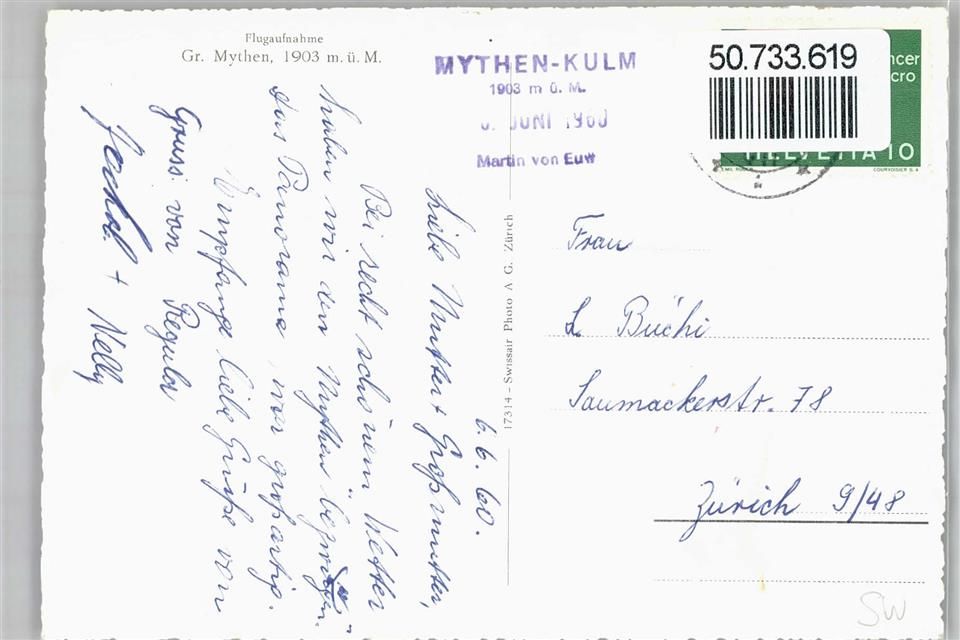 Flugaufnahme
Gr. Mythen, 1903 m. ü. M.
MYTHEN-KULM
1903 m ü. M.
JUNI 1960
Martin von Euw
50.733.619
ncer
cro
HELVETIA 10
COURVOISIER S.A
17314 – Swissair Photo A G. Zürich
6. 6. 60.
Liebe Mutter + Großmutter,
Bei recht schönem Wetter
haben wir den Mythen
das Panorama war großartig.
Empfange liebe Grüße von
Gruss von Regula
+ Nelly
Frau
L. Büchi
Saumackerstr. 78
Zürich 9/48
SW